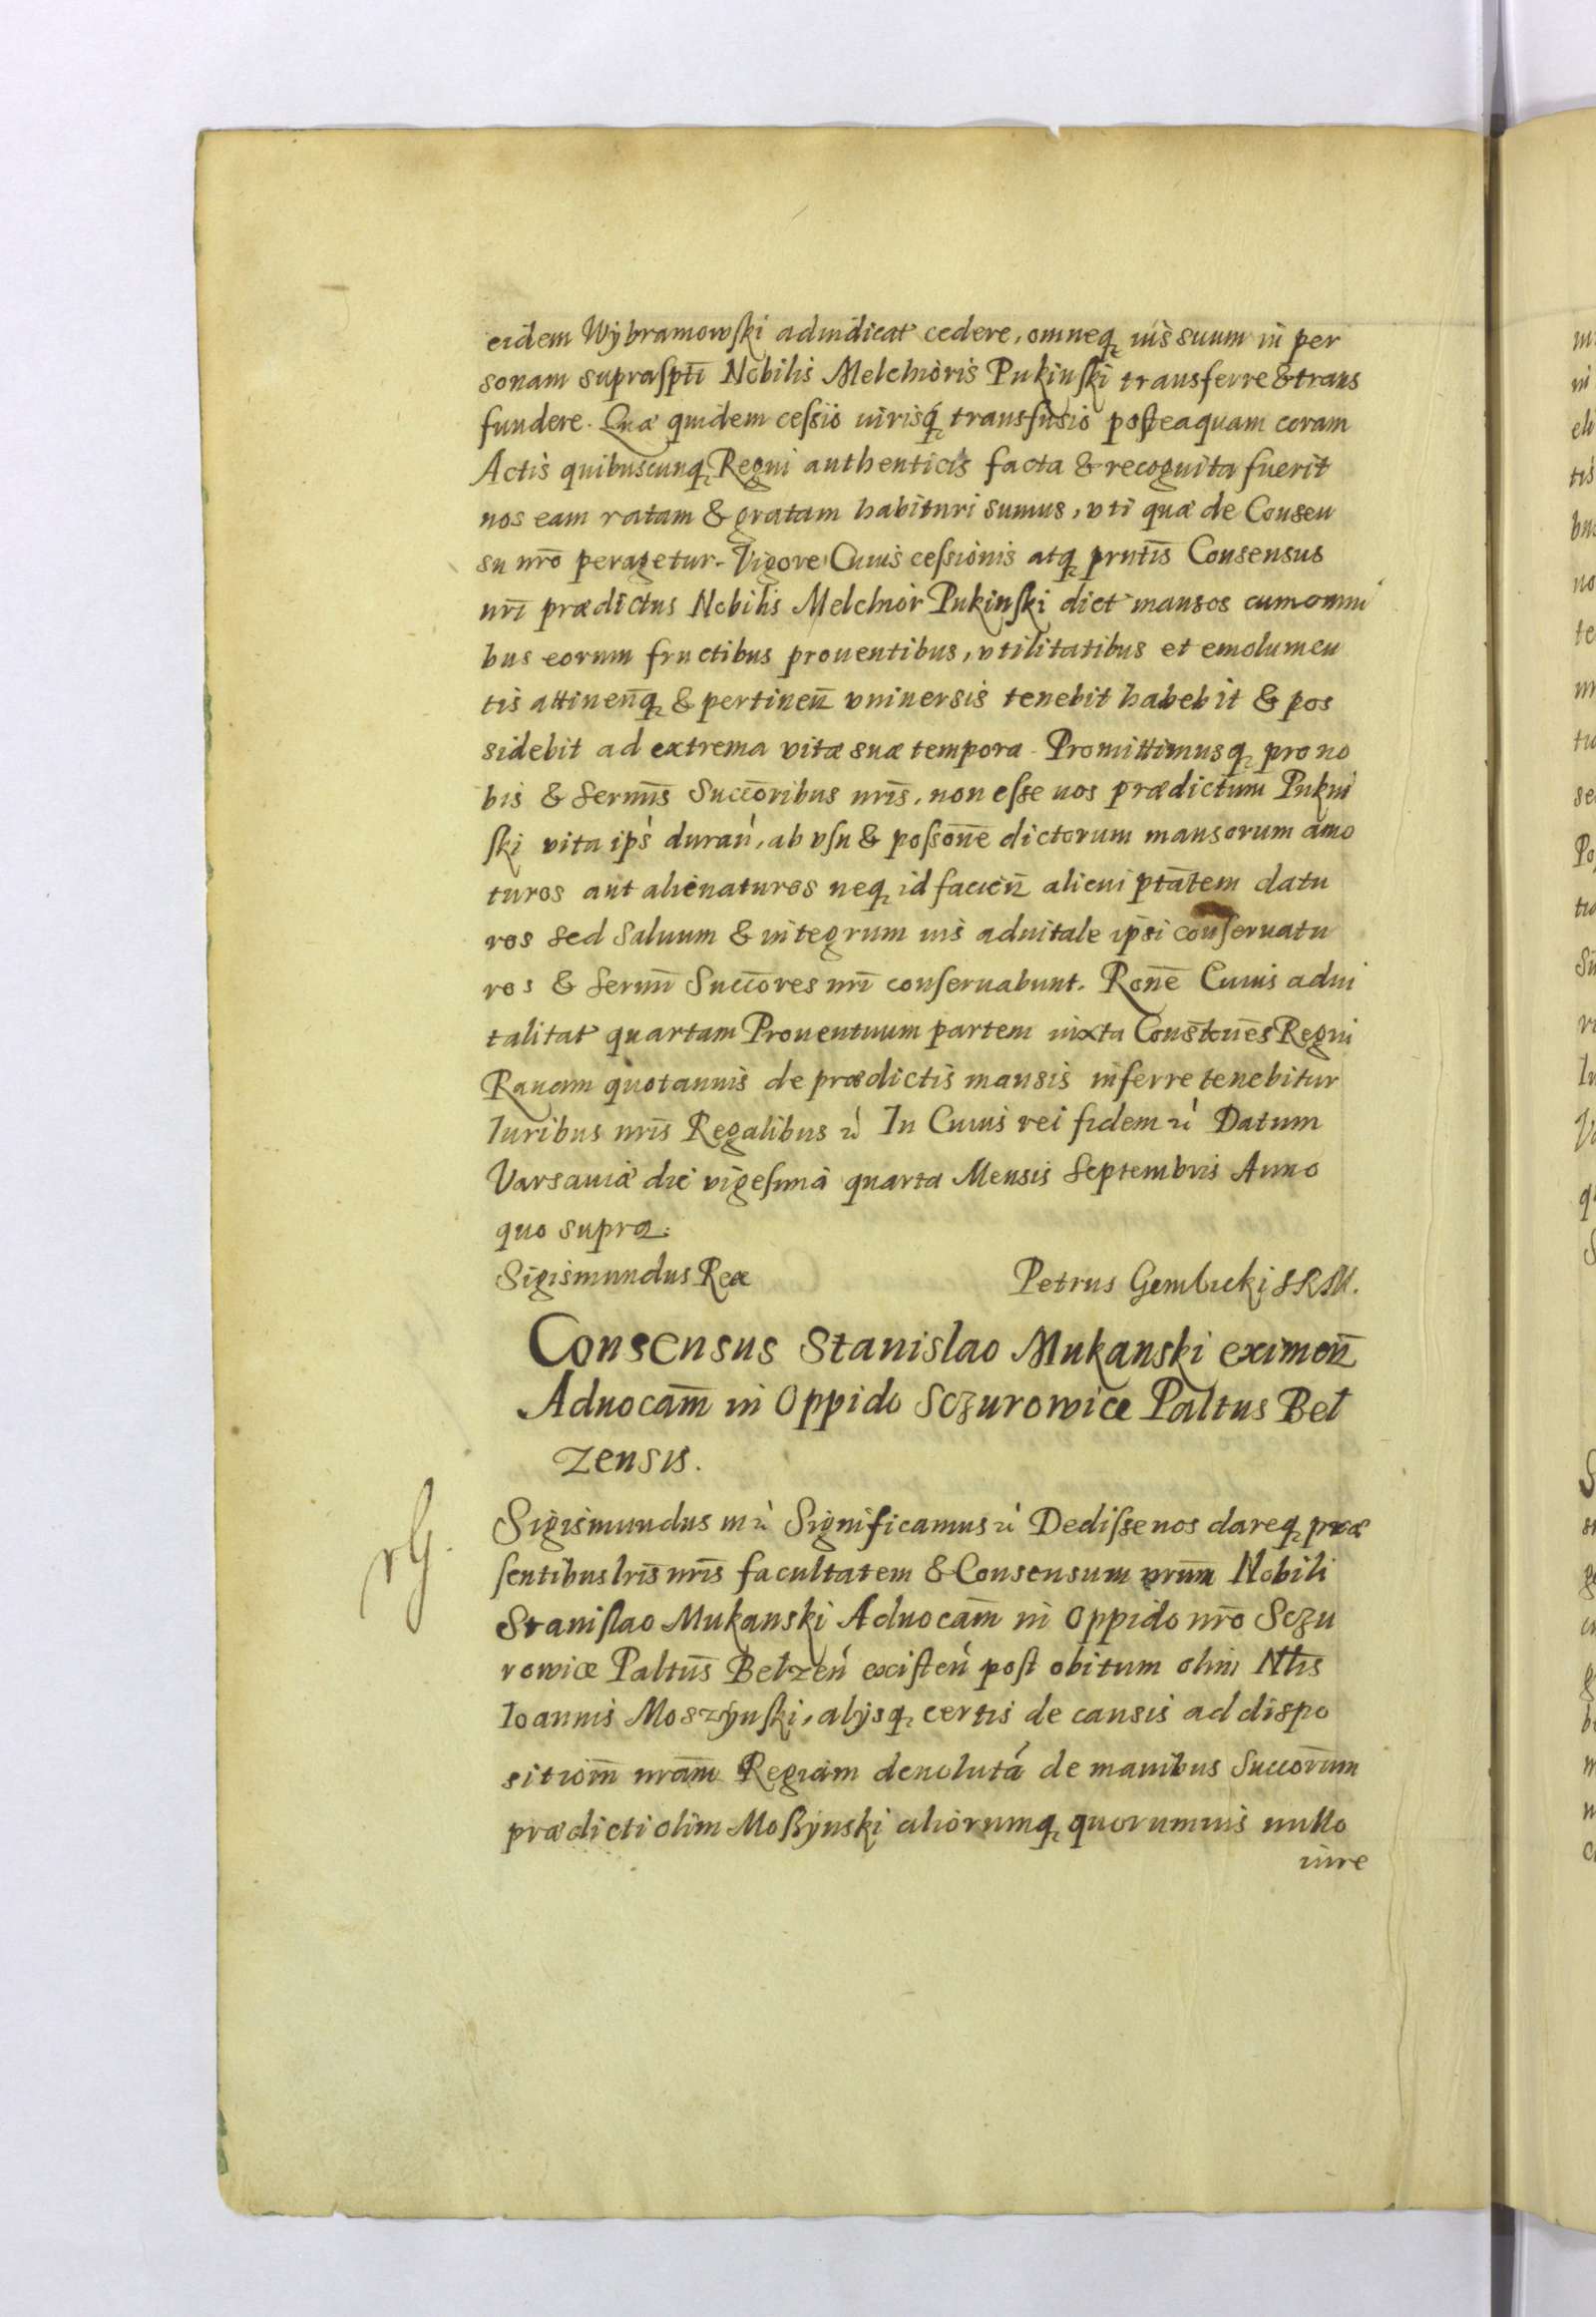 eidem Wÿbramowski adiudicat cedere, omneq ius suum in per
sonam suprasptĩ Nobilis Melchioris Pukinski transferre & trans
fundere. Quæ quidem cessio iurisq transfusio posteaquam coram
Actis quibuscunq Regni authenticis facta & recognita fuerit
nos eam ratam & gratam habituri sumus, uti quæ de Consen
su nr̃o peragetur. Vigore Cuius cessionis atq prntis̃ Consensus
nrĩ prædictus Nobilis Melchior Pukinski dict mansos cum omni
bus eorum fructibus prouentibus, vtilitatibus et emolumen
tis attinen̄q & pertinen̄ vniuersis tenebit habebit & pos
sidebit ad extrema vitæ suæ tempora. Promittimusq pro no
bis & Sermis̃ Succõribus nris̃, non esse nos prædictum Pukin
ski vita ips̀ duran̄, ab vsu & possonẽ dictorum mansorum amo
turos aut alienaturos neq id facien̄ alicui ptãtem datu
ros sed saluum & integrum ius aduitale ipsi conseruatu
ros & Sermĩ Succõres nrĩ conseruabunt. Ronẽ Cuius adui
talitat quartam Prouentuum partem iuxta Constcuẽs Regni
Rauam quotannis de prædictis mansis inferre tenebitur
Iuribus nris̃ Regalibus &c̀ In Cuius rei fidem &c̀ Datum
Varsauiæ die vigesima quarta Mensis Septembris Anno
quo supra.
Sigismundus Rex Petrus Gembicki S R M.
Consensus Stanislao Mukanski eximen̄
Aduocam̃ in Oppido Sczurowice Paltus Bel
zensis.
rG.
Sigismundus III &c̀ Significamus &c̀ Dedisse nos dareq præ
sentibus lris̃ nris̃ facultatem & Consensum nrum̃ Nobili
Stanislao Mukanski Aduocam̃ in Oppido nr̃o Sczu
rowice Paltus̃ Belzen̄ existen̄ post obitum olim Nlis̃
Ioannis Moszÿnski, alijsq certis de causis ad dispo
sitiom̃ nram̃ Regiam deuolutá de manibus Succorum̃
prædicti olim Moßÿnski aliorumq quorumuis nullo
iure